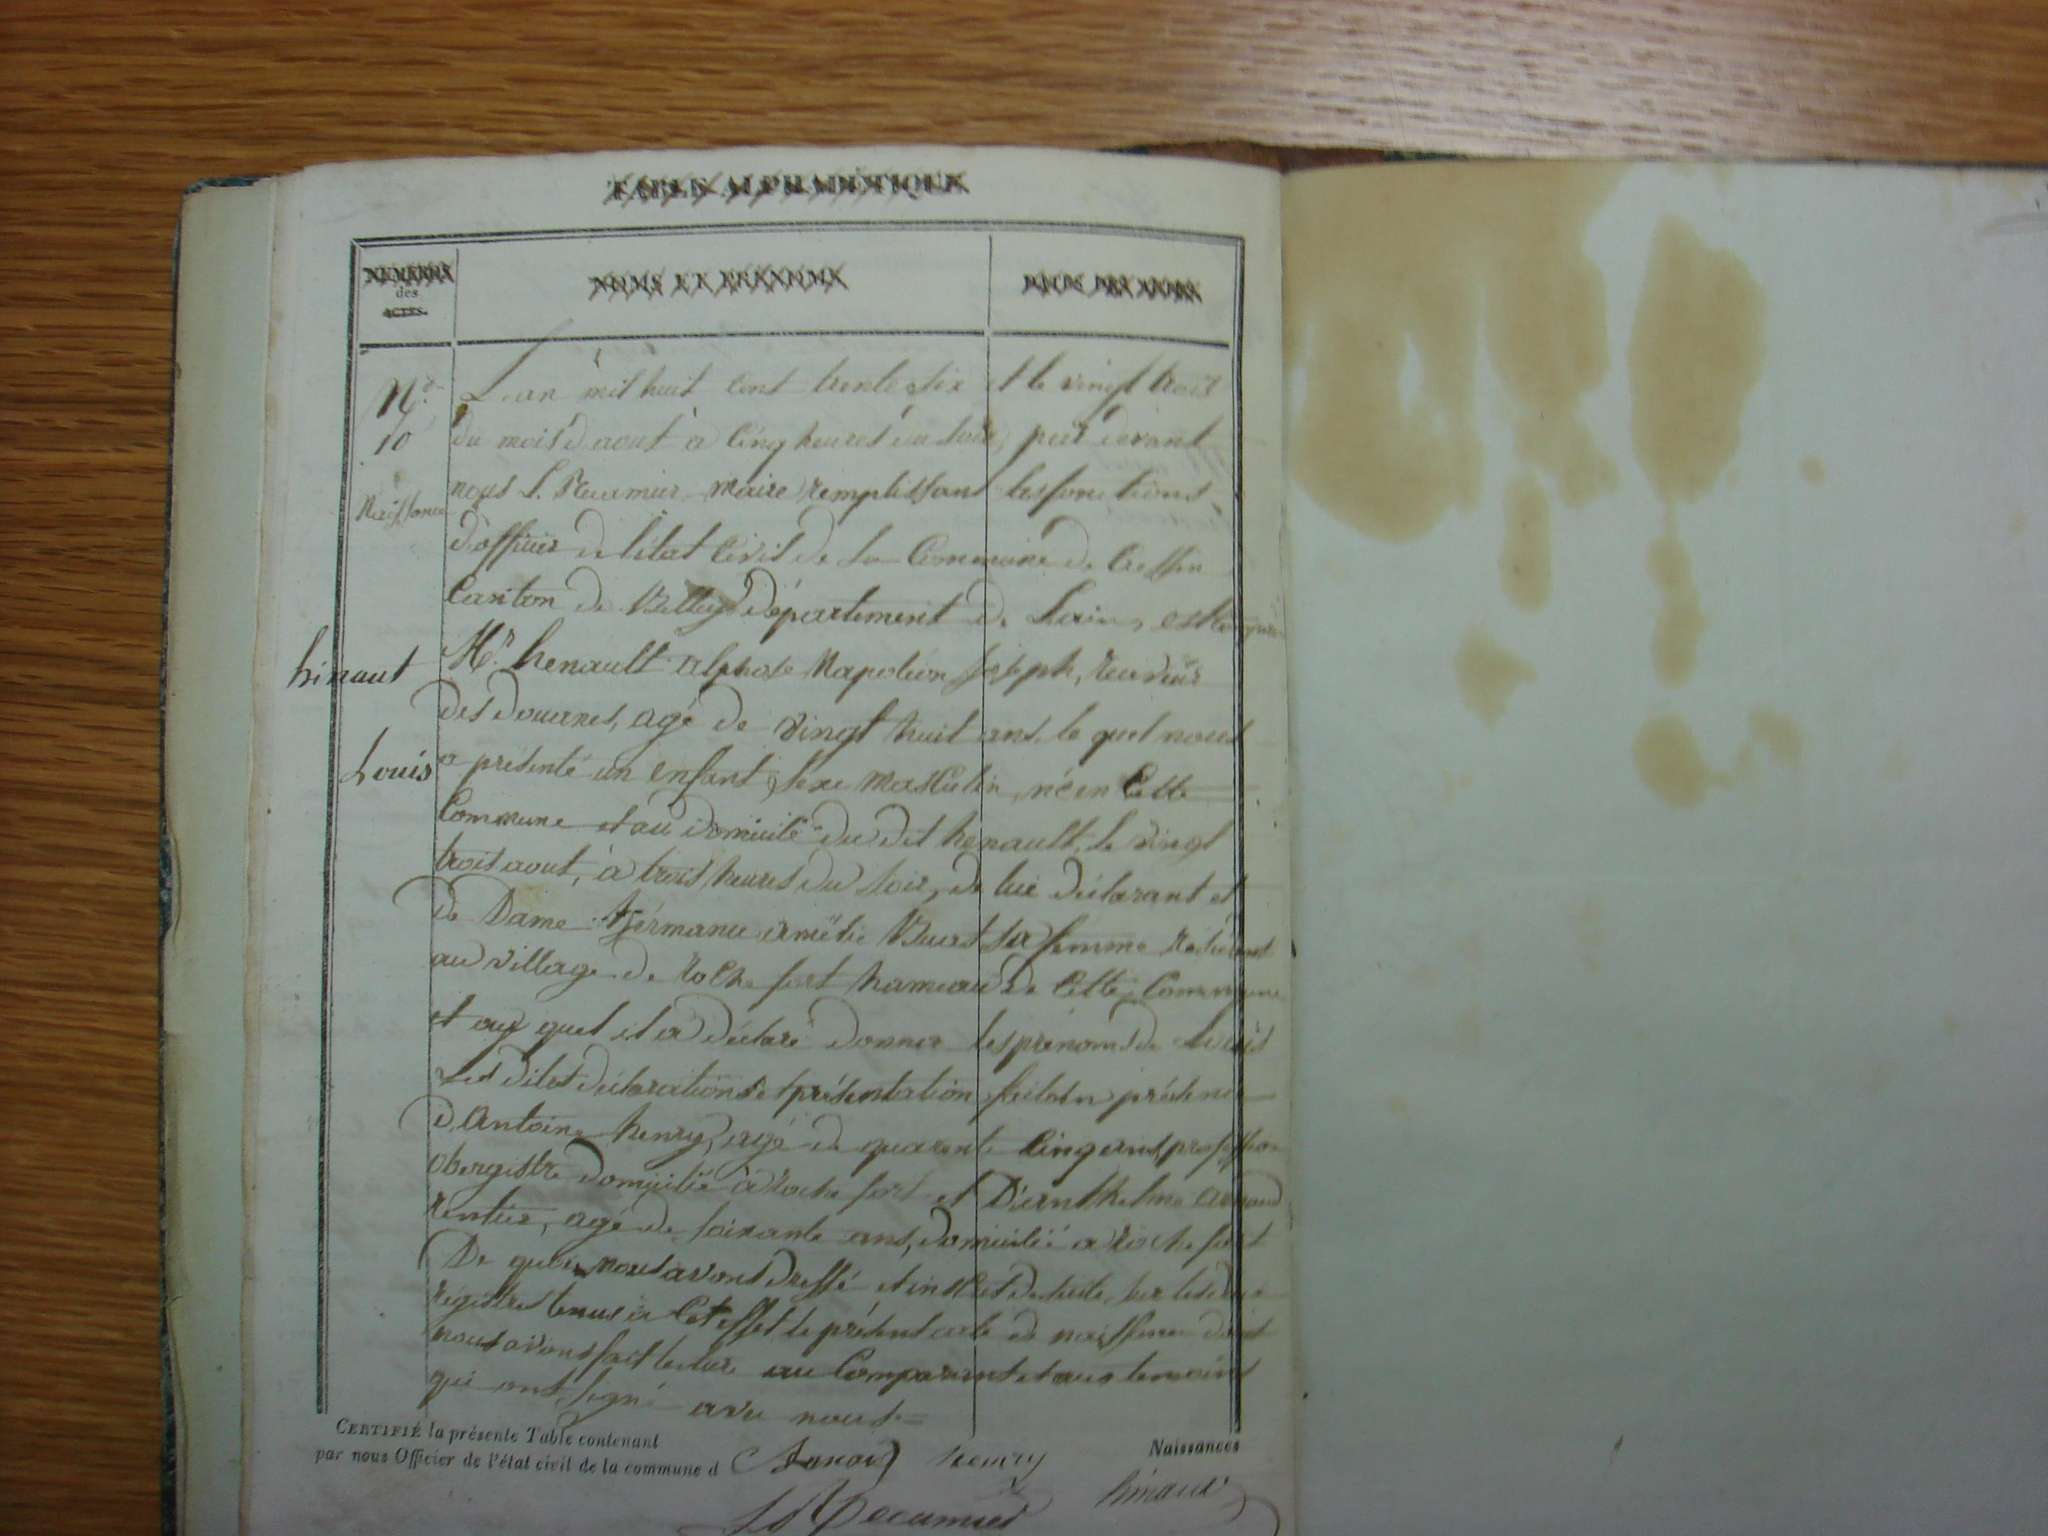 TABLE ALPHABÉTIQUE
NUMÉROS
des
ACTES.
NOMS ET PRÉNOMS
DATE DES ACTES
N.o
10
Naissance
hinaut
Louis
L'an mil huit cent trente six et le vingt trois
du mois d'aout à cinq heures du soir, par devant
nous L. Récamier, maire remplissant les fonctions
d'officier de l'état civil de la Commune de Cressin
Canton de Belley département de Lain, est
Mr. henault alphose Napoléon Joseph, receveur
des douanes, agé de vingt huit ans, le quel nous
a présenté un enfant sexe masculin, né en Cette
Commune et au domicile du dit henault, le vingt
trois aout, à trois heures du soir, de lui déclarant et
de Dame amélie sa femme
au village de roche fort hameau de Cette Commune
et au quel il a déclaré donner les prénoms de Louis
Les dites déclaration et présentation faites en présence
d'Antoine henry, agé de quarente Cinq ans, profession
obergistre domicilié à roche fort et D'anthelme arnaud
rentier, agé de soixante ans, domicilié a roche fort
De quoi nous avons dressé et inscrit de suite sur les deux
régistres tenus à Cet effet le présent acte de naissance dont
nous avons fait lecture au Comparant et aux temoins
qui ont signé avec nous =
CERTIFIÉ la présente Table contenant
Naissances
par nous Officier de l'état civil de la commune d
Arnaud henry
hinaut
Ls Récamier